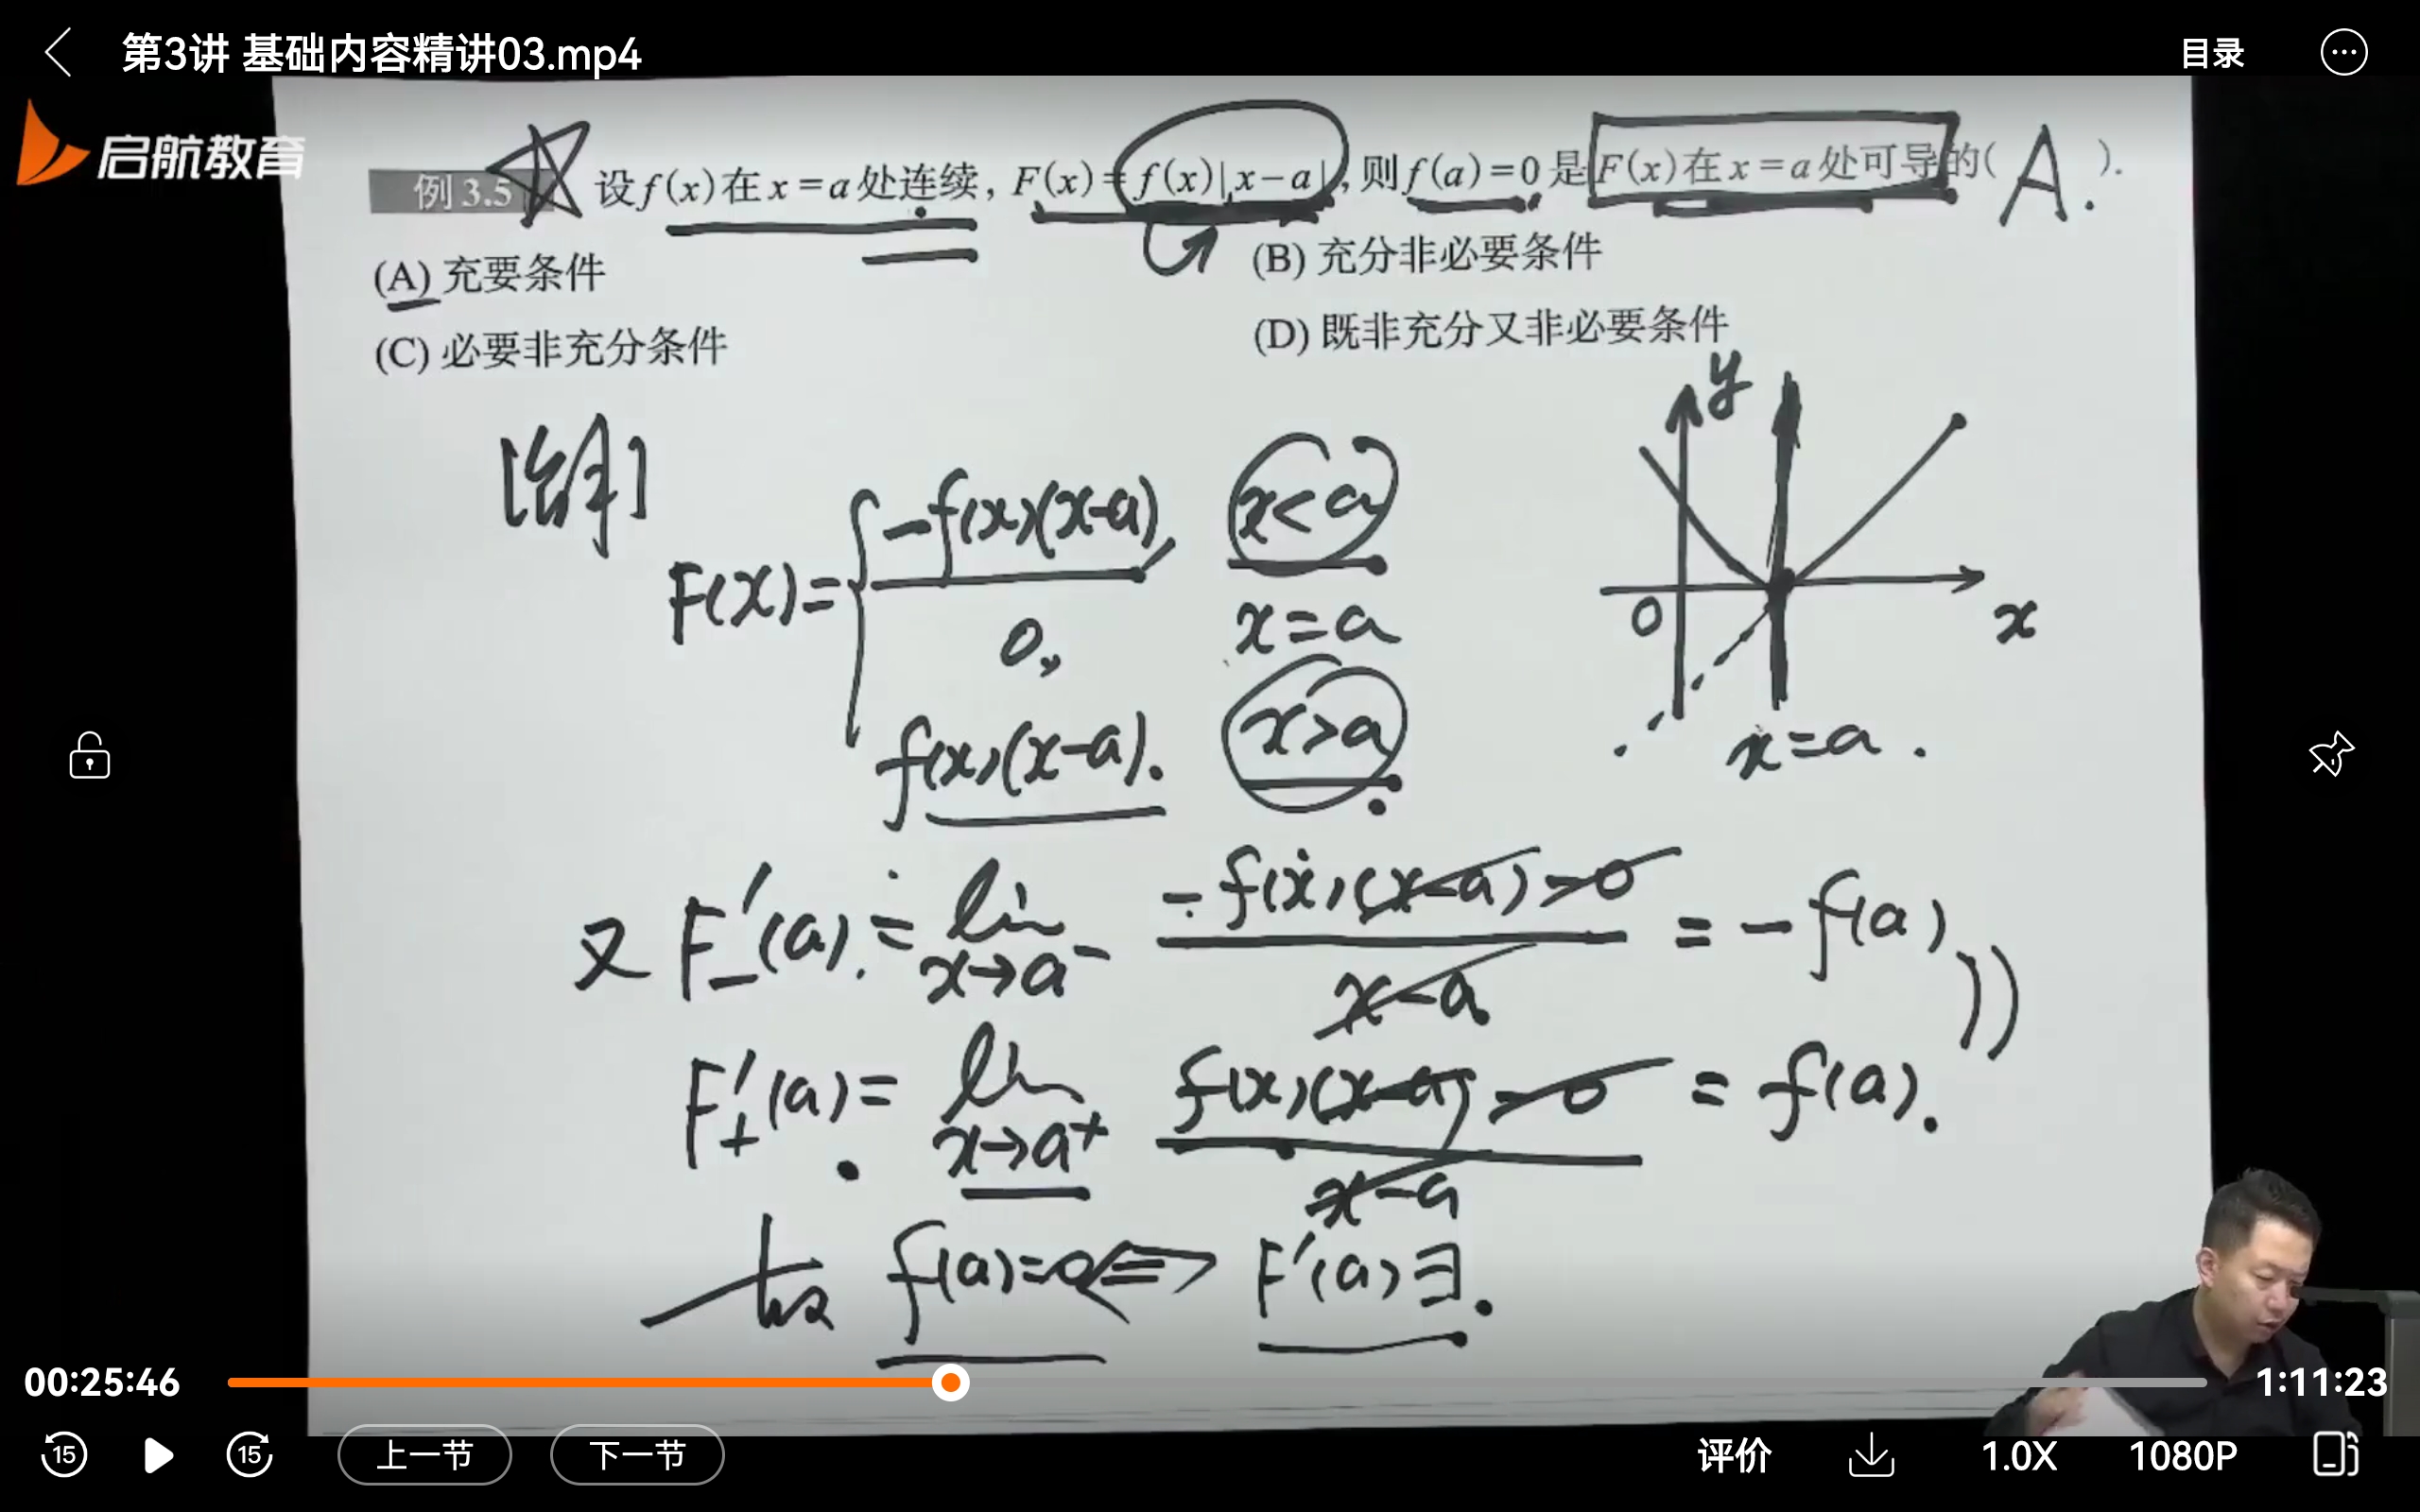 第3讲 基础内容精讲03.mp4
目录
启航教育
例 3.5 设f(x)在x=a处连续, F(x)=f(x)|x-a|, 则f(a)=0是F(x)在x=a处可导的( A ).
(A) 充要条件 (B) 充分非必要条件
(C) 必要非充分条件 (D) 既非充分又非必要条件
[解]
y
F(x)={ -f(x)(x-a), x<a
0, x=a
f(x)(x-a). x>a
0 x
x=a.
又 F₋'(a) = lim x→a⁻ (-f(x)(x-a)-0)/(x-a) = -f(a)
F₊'(a) = lim x→a⁺ (f(x)(x-a)-0)/(x-a) = f(a).
故 f(a)=0 <=> F'(a)∃.
00:25:46 1:11:23
15 15 上一节 下一节 评价 1.0X 1080P